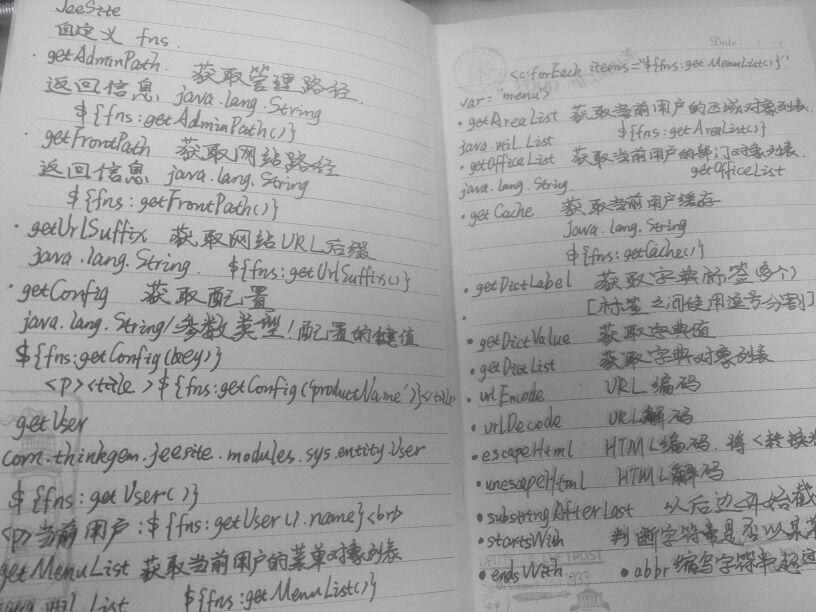 JeeSite
自定义 fns.
· getAdminPath. 获取管理路径.
返回信息 java.lang.String
${fns:getAdminPath()}
· getFrontPath 获取网站路径
返回信息 java.lang.String
${fns:getFrontPath()}
· getUrlSuffix 获取网站URL后缀
java.lang.String. ${fns:getUrlSuffix()}
· getConfig 获取配置
java.lang.String/参数类型/配置的键值
${fns:getConfig(key)}
<P><title>${fns:getConfig('productName')}</title>
getUser
com.thinkgem.jeesite.modules.sys.entity.User
${fns:getUser()}
<P>当前用户:${fns:getUser().name}<br>
getMenuList 获取当前用户的菜单对象列表
java.util.List ${fns:getMenuList()}
Date:
<c:forEach items="${fns:getMenuList()}"
var="menu">
· getAreaList 获取当前用户的区域对象列表.
java.util.List ${fns:getAreaList()}
· getOfficeList 获取当前用户的部门对象列表.
java.lang.String. getOfficeList
· getCache 获取当前用户缓存
java.lang.String
${fns:getCache()}
· getDictLabel 获取字典标签(多个)
· [标签之间使用逗号分割]
· getDictValue 获取字典值
· getDictList 获取字典对象列表
· urlEncode URL编码
· urlDecode URL解码
· escapeHtml HTML编码. 将<转换
· unescapeHtml HTML解码.
· substringAfterLast 从后边开始截
· startsWith 判断字符串是否以某
· endsWith · abbr 缩写字符串超过